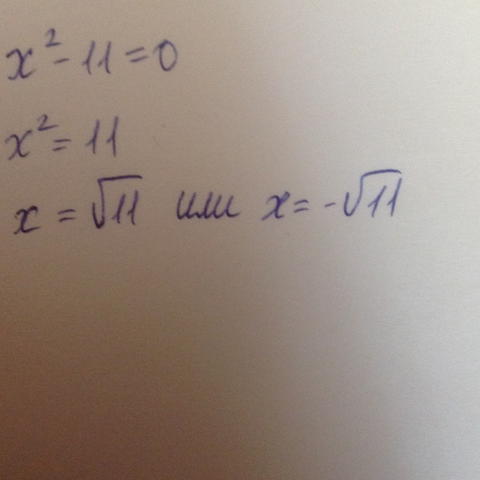 x² - 11 = 0
x² = 11
x = √11 или x = -√11